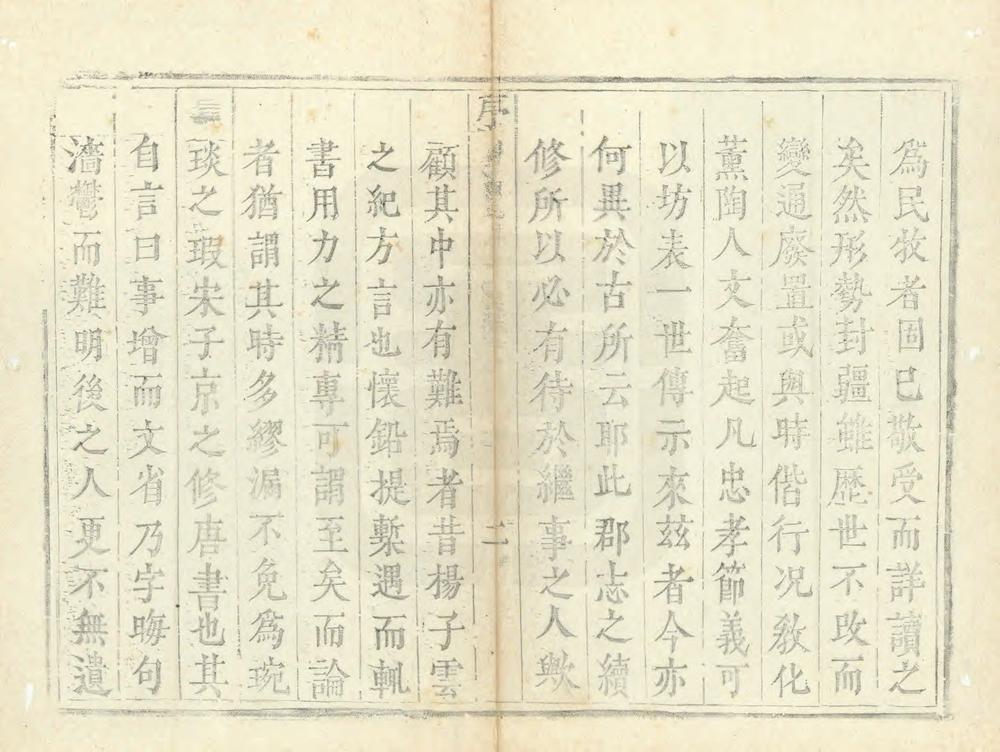 爲民牧者固已敬受而詳讀之
矣然形勢封疆雖歷世不改而
變通廢置或與時偕行况教化
薰陶人文奮起凡忠孝節義可
以坊表一世傳示來茲者今亦
何異於古所云耶此郡志之續
修所以必有待於繼事之人歟
序
二
顧其中亦有難焉者昔揚子雲
之紀方言也懷鉛提槧遇而輒
書用力之精專可謂至矣而論
者猶謂其時多繆漏不免爲琬
琰之瑕宋子京之修唐書也其
自言曰事增而文省乃字晦句
澀鬱而難明後之人更不無遺